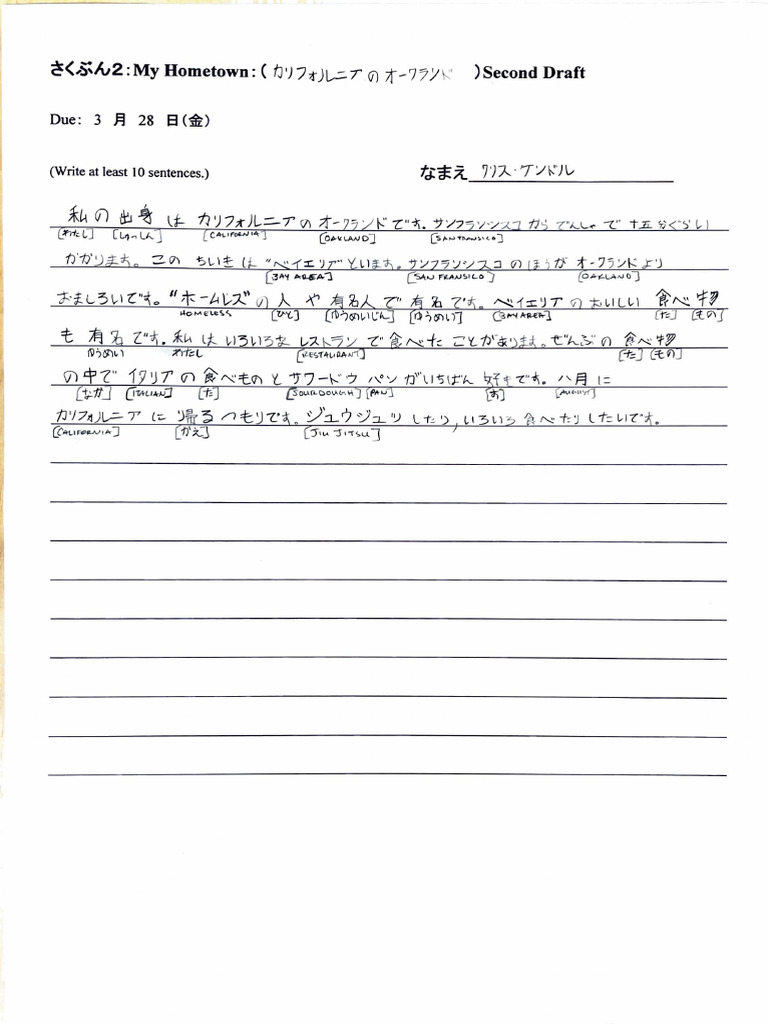 さくぶん2:My Hometown:( カリフォルニアのオークランド )Second Draft
Due: 3 月 28 日(金)
(Write at least 10 sentences.) なまえ クリス・ケンドル
私の出身はカリフォルニアのオークランドです。サンフランシスコからでんしゃで十五分ぐらい
[わたし] [しゅっしん] [CALIFORNIA] [OAKLAND] [SANFRANSICO]
かかります。このちいきは"ベイエリア"といます。サンフランシスコのほうがオークランドより
[BAY AREA] [SAN FRANSICO] [OAKLAND]
おましろいです。"ホームレス"の人や有名人で有名です。ベイエリアのおいしい食べ物
HOMELESS [ひと] [ゆうめいじん] [ゆうめい] [BAY AREA] [た] [もの]
も有名です。私はいろいろなレストランで食べたことがあります。ぜんぶの食べ物
ゆうめい わたし [RESTAURANT] [た] [もの]
の中でイタリアの食べものとサワードウパンがいちばん好きです。八月に
[なか] [ITALIAN] [た] [SOURDOUGH] [PAN] [す] [AUGUST]
カリフォルニアに帰るつもりです。ジュウジュツしたり,いろいろ食べたりしたいです。
[CALIFORNIA] [かえ] [JIU JITSU]